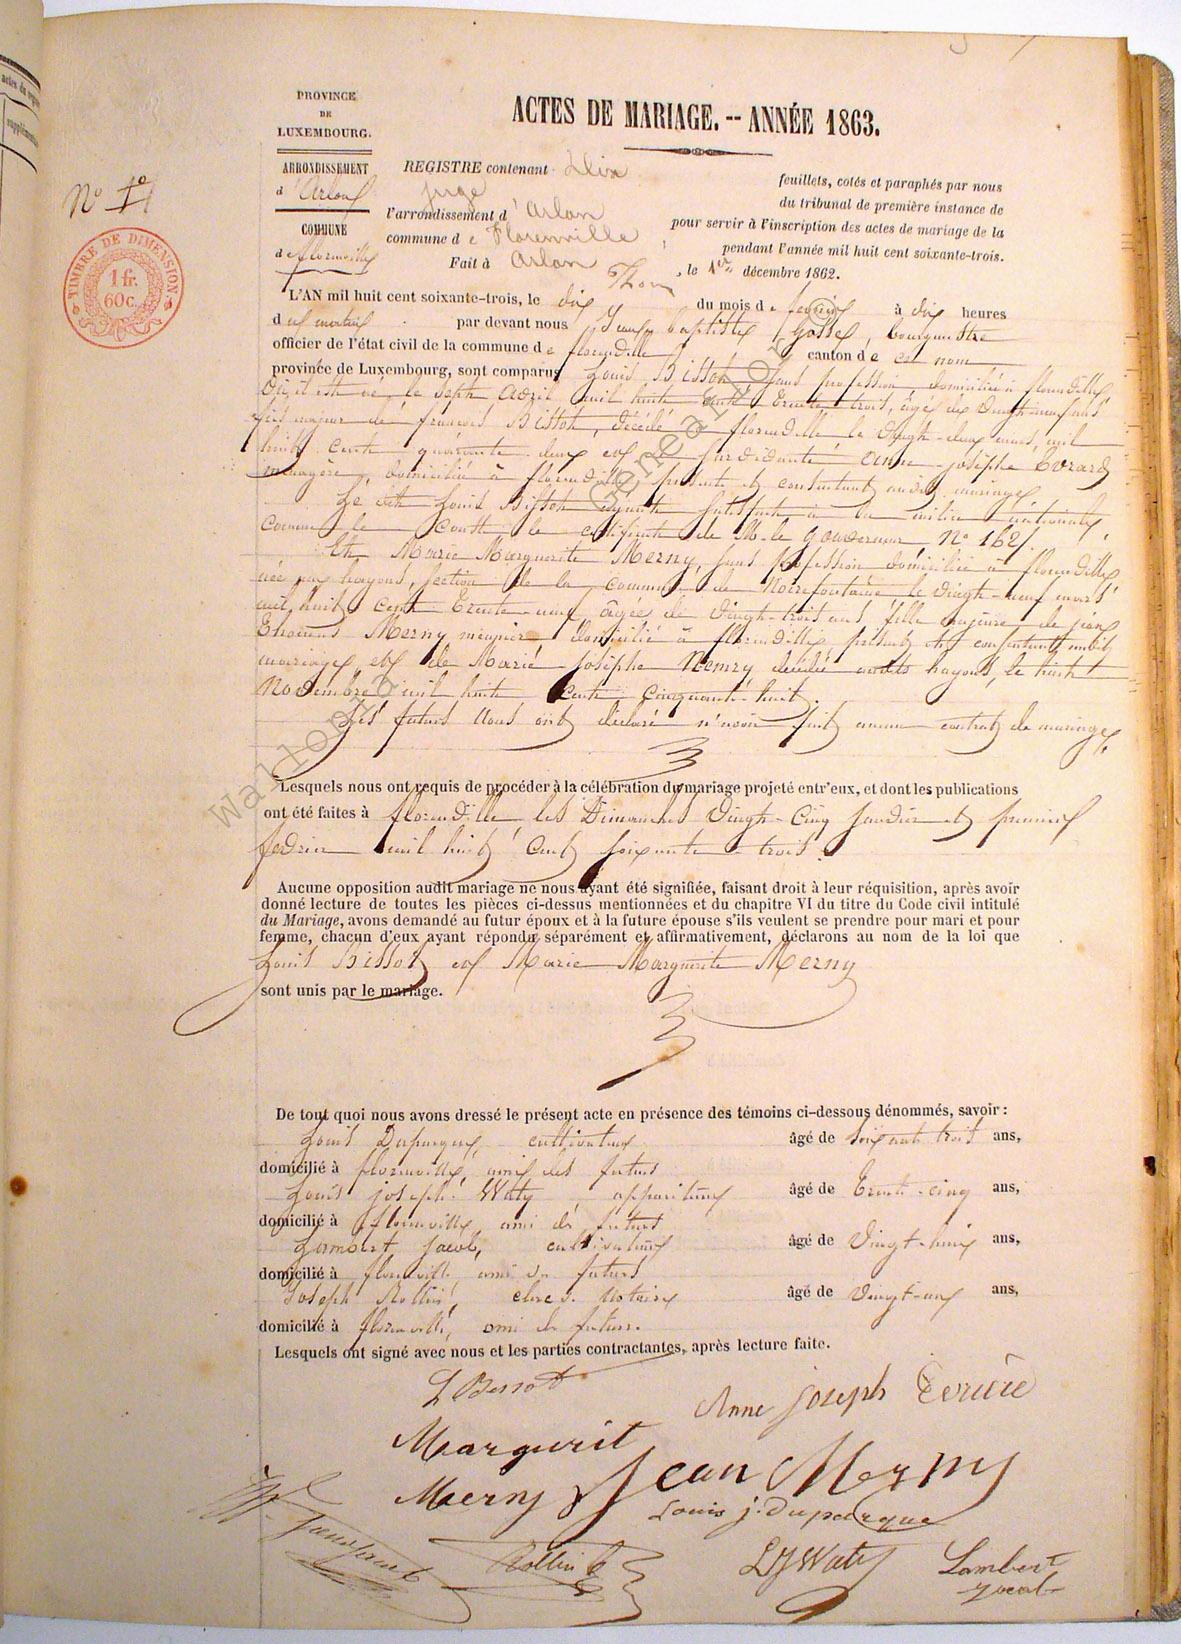 actes du
supplément
PROVINCE
DE
LUXEMBOURG.
ARRONDISSEMENT
d'Arlon
COMMUNE
de florenville
N° 1
TIMBRE DE DIMENSION
1 fr.
60 c.
ACTES DE MARIAGE. -- ANNÉE 1863.
REGISTRE contenant dix feuillets, cotés et paraphés par nous
juge du tribunal de première instance de
l'arrondissement d'Arlon pour servir à l'inscription des actes de mariage de la
commune de Florenville, pendant l'année mil huit cent soixante-trois.
Fait à Arlon, le 1er décembre 1862.
L'AN mil huit cent soixante-trois, le dix du mois de février à dix heures
du matin par devant nous Jean baptiste Gosse, bourgmestre
officier de l'état civil de la commune de florenville canton de ce nom
province de Luxembourg, sont comparus Louis Bissot sans profession, domicilié à florenville
où il est né le sept avril mil huit cent trente trois, âgé de vingt-neuf ans
fils majeur de françois Bissot, décédé à florenville le vingt-deux mars, mil
huit cent quarante deux et de survivante anne-josephe Evrard
ménagère, domiciliée à florenville présente et consentante audit mariage
Le dit Louis Bissot ayant satisfait à la milice nationale,
comme le constate le certificat de M. le gouverneur N° 1621.
Et Marie Marguerite Merny, sans profession domiciliée à florenville
née aux hayons, section de la commune de Noirefontaine le vingt-neuf mars
mil huit cent trente-neuf âgée de vingt-trois ans fille majeure de jean
Merny meunier domicilié à florenville, présent et consentant audit
mariage, et de Marie josephe Nemry décédée auxdits hayons, le huit
Novembre mil huit cent cinquante-huit.
Les futurs nous ont déclaré n'avoir fait aucun contrat de mariage.
Lesquels nous ont requis de procéder à la célébration du mariage projeté entr'eux, et dont les publications
ont été faites à florenville les Dimanches vingt-cinq janvier et premier
février mil huit cent soixante-trois.
Aucune opposition audit mariage ne nous ayant été signifiée, faisant droit à leur réquisition, après avoir
donné lecture de toutes les pièces ci-dessus mentionnées et du chapitre VI du titre du Code civil intitulé
du Mariage, avons demandé au futur époux et à la future épouse s'ils veulent se prendre pour mari et pour
femme, chacun d'eux ayant répondu séparément et affirmativement, déclarons au nom de la loi que
Louis Bissot et Marie Marguerite Merny
sont unis par le mariage.
De tout quoi nous avons dressé le présent acte en présence des témoins ci-dessous dénommés, savoir :
Louis Duparque, cultivateur âgé de soixante trois ans,
domicilié à florenville, ami des futurs
Louis joseph Waty appariteur âgé de trente-cinq ans,
domicilié à florenville, ami des futurs
Lambert Jacob, cultivateur âgé de vingt-huit ans,
domicilié à florenville, ami des futurs
Joseph Rollin, clerc de Notaire âgé de vingt-un ans,
domicilié à florenville, ami des futurs.
Lesquels ont signé avec nous et les parties contractantes, après lecture faite.
L Bissot
Anne joseph
Margurit
Merny
Jean Merny
Louis j. Duparque
Rollin
LJ Waty
Lambert
Jacob
Wallonia
Genealogie ©